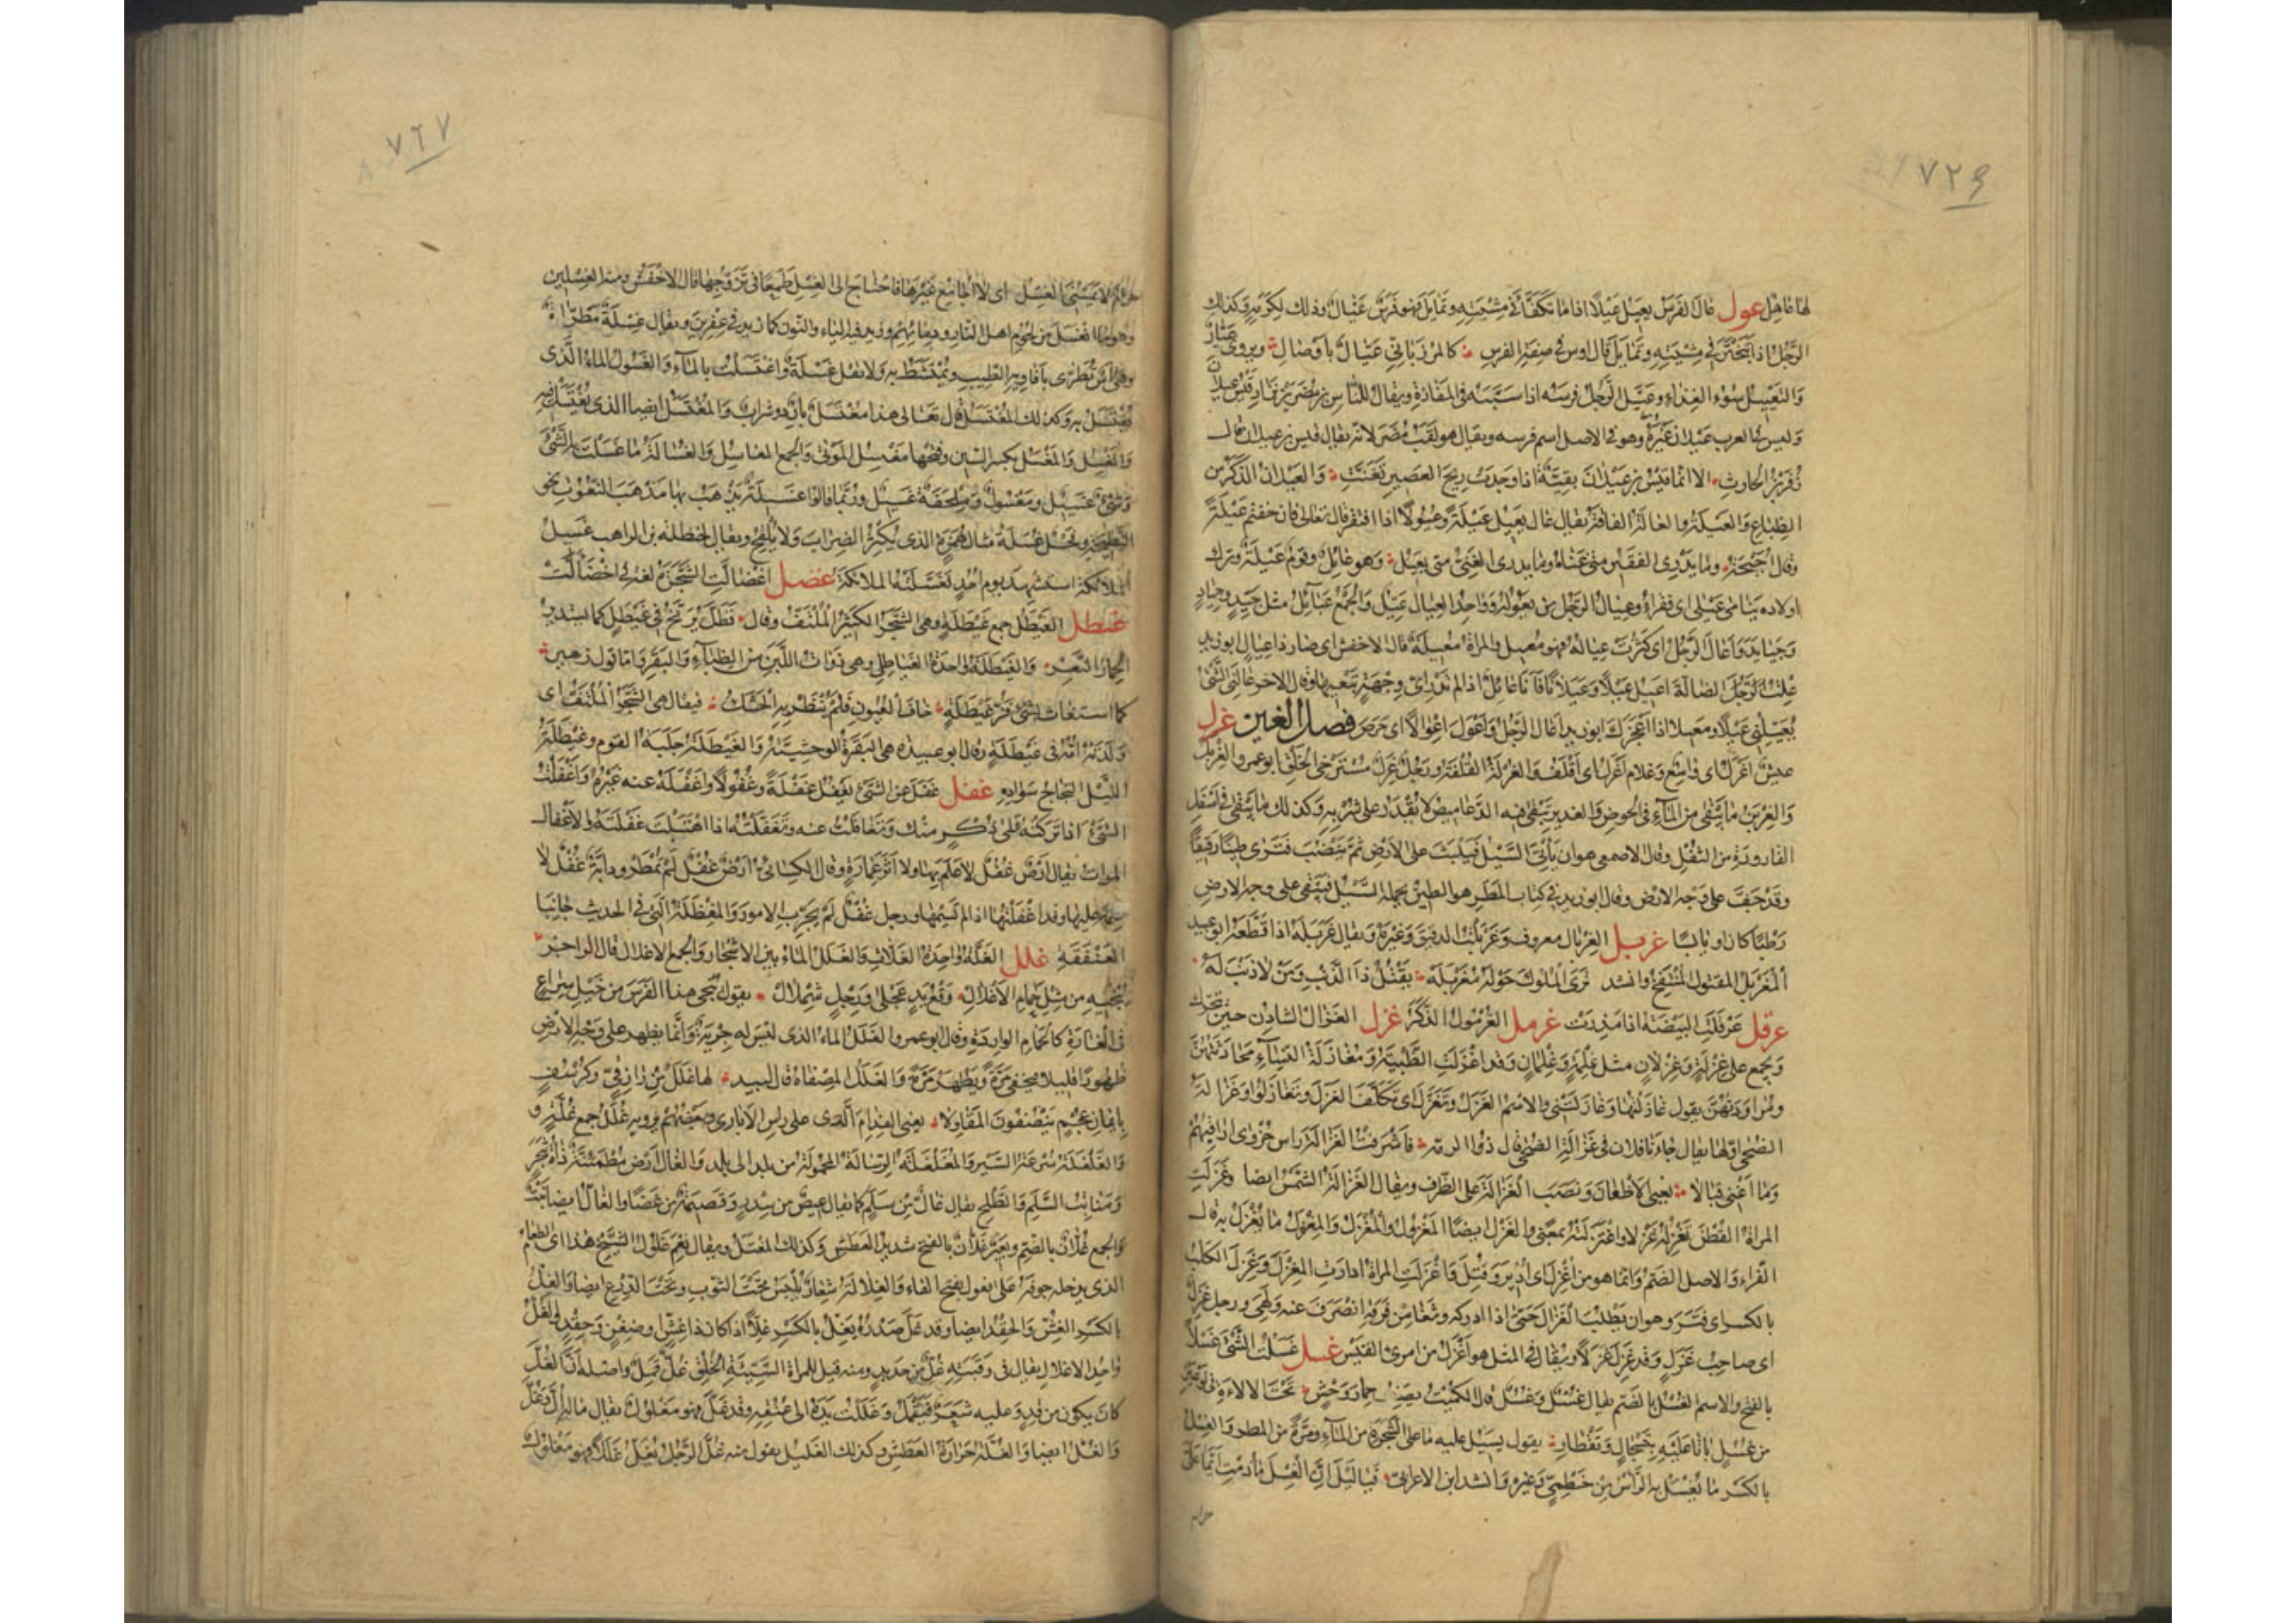 ٧٢٤
لها عاهل عول عال الفرس يعيل عيلا اذا ما تكفأ في مشيته وتمايل فهو فرس عيال وذلك لكرمه وكذلك
الرجل اذا تبختر في مشيته وتمايل قال اوس في صفة الفرس كالمرزباني عيال بأوصال ويروى عيار
والتعييل سوء الغذاء وعيل الرجل فرسه اذا سيبه في المفازة ويقال للناس بن مضر بن نزار قيس عيلان
وليس في العرب عيلان غيره وهو في الاصل اسم فرسه ويقال هو لقب مضر لانه يقال قيس بن عيلان قال
زفر بن الحارث الا انما قيس بن عيلان بقية اذا وجدت ريح العصير تغنت والعيلان الذكر من
الضباع والعيلة والعالة الفاقة يقال عال يعيل عيلة وعيولا اذا افتقر قال تعالى فان خفتم عيلة
وقال احيحة وما يدري الفقير متى غناه وما يدري الغني متى يعيل وهو عايل وقوم عيلة وترك
اولاده يتامى عيلى اى فقراء وعيال الرجل من يعوله وواحد العيال عيل والجمع عيايل مثل جيد وجياد
وجيايد واعال الرجل اى كثرت عياله فهو معيل والمراة معيلة قال الاخفش اى صار ذا عيال ابو زيد
علت للرجل الضالة اعيل عيلا وعيلانا فانا عايل اذا لم تدر اى وجهة تبغيها وقال الاحمر عالني الشئ
يعيلني عيلا ومعيلا اذا اعجزك ابو زيد اعال الرجل واعول اعوالا اى حرص فصل الغين غرل
عيش اغرل اى واسع وغلام اغرل اى اقلف والغرلة القلفة ورجل غرل مسترخي الخلق ابو عمرو الغريل
والغرين ما يبقى من الماء في الحوض والغدير تبقى فيه الدعاميص لا يقدر على شربه وكذلك ما يبقى في اسفل
القارورة من الثفل وقال الاصمعي هو ان يأتي السيل فيلبث على الارض ثم ينضب فترى طينا رقيقا
وقد جف على وجه الارض وقال ابو زيد في كتاب المطر هو الطين يحمله السيل فيبقى على وجه الارض
رطبا كان او يابسا غربل الغربال معروف وغربلت الدقيق وغيره ويقال غربله اذا قطعه ابو عبيد
المغربل المقتول المنتفخ وانشد ترى الملوك حوله مغربله يقتل ذا الذنب ومن لا ذنب له
غرقل غرقلت البيضة اذا مذرت غرمل الغرمول الذكر غزل الغزال الشادن حين يتحرك
ويجمع على غزلة وغزلان مثل غلمة وغلمان وقد اغزلت الظبية ومغازلة النساء محادثتهن
ومراودتهن يقول غازلتها وغازلتني والاسم الغزل وتغزل اى تكلف الغزل وتغازلوا وغزالة
الضحى اولها يقال جاءنا فلان في غزالة الضحى قال ذو الرمه فاشرفت الغزالة راس حزوى اراقبهم
وما اغنى قبالا يعني الاظعان ونصب الغزالة على الظرف ويقال الغزالة الشمس ايضا وغزلت
المراة القطن تغزله غزلا واغتزلته بمعنى والغزل ايضا المغزول والمغزل والمغزل ما يغزل به قال
الفراء والاصل الضم وانما هو من اغزل اى ادير وفتل واغزلت المراة ادارت المغزل وغزل الكلب
بالكسر اى فتر وهو ان يطلب الغزال حتى اذا ادركه وثغا من فرقه انصرف عنه ولهى ورجل غزل
اى صاحب غزل وقد غزل غزلا ويقال في المثل هو اغزل من امرئ القيس غسل غسلت الشئ غسلا
بالفتح والاسم الغسل بالضم يقال غسل وغسل قال الكميت يصف حمار وحش تحت الالاءة في نوعين
من غسل باتا عليه بتسجال وتقطار يقول يسيل عليه ما على الشجرة من الماء ومرة من المطر والغسل
بالكسر ما يغسل به الراس من خطمي وغيره وانشد ابن الاعرابي فيا ليل ان الغسل ما دمت ايما علي
حرام
٧٦٧
حرام لا يمسني الغسل اى لا اجامع غيرها فاحتاج الى الغسل طمعا في تزوجها قال الاخفش ومنه الغسلين
وهو ما انغسل من لحوم اهل النار ودمائهم وزيد فيه الياء والنون كما زيد في عفرين ويقال غسلة مطراة
وهي آس يطرى بافاويه الطيب ويمتشط به ولا تقل غسلة واغتسلت بالماء والغسول الماء الذى
يغتسل به وكذلك المغتسل قال تعالى هذا مغتسل بارد وشراب والمغتسل ايضا الذى يغتسل فيه
والمغسل والمغسل بكسر السين وفتحها مغسل الموتى والجمع المغاسل والغسالة ما غسلت به الشئ
وشئ غسيل ومغسول وملحفة غسيل وربما قالوا غسيلة يذهب بها مذهب النعوت نحو
النطيحة وفحل غسلة مثال همزة الذى يكثر الضراب ولا يلقح ويقال لحنظلة بن الراهب غسيل
الملائكة استشهد يوم احد فغسلته الملائكة غضل اغضالت الشجرة لغة في اخضالت
غيطل الغيطل جمع غيطلة وهي الشجر الكثير الملتف وقال فظل يرنح في غيطل كما يستدير
الحمار النعر والغيطلة واحدة الغياطل وهي ذوات اللبن من الظباء والبقر واما قول زهير
كما استغاث بشئ فز غيطلة خاف العيون فلم ينظر به الحشك فيقال هي الشجر الملتف اى
ولدته امه في غيطلة وقال ابو عبيدة هي البقرة الوحشية والغيطلة جلبة القوم وغيطلة
الليل التجاج سواده غفل غفل عن الشئ يغفل غفلة وغفولا واغفله عنه غيره واغفلت
الشئ اذا تركته على ذكر منك وتغافلت عنه وتغفلته اذا اهتبلت غفلته والاغفال
الموات يقال ارض غفل لا علم بها ولا اثر عمارة وقال الكسائي ارض غفل لم تمطر ودابة غفل لا
سمة عليها وقد اغفلتها اذا لم تسمها ورجل غفل لم يجرب الامور والمغفلة التي في الحديث جانبا
العنفقة غلل الغلة واحدة الغلات والغلل الماء بين الاشجار والجمع الاغلال قال الراجز
ينجيه من مثل حمام الاغلال وقع يد عجلى ورجل شملال يقول ينجي هذا الفرس من خيل سراع
في الغارة كالحمام الواردة وقال ابو عمرو الغلل الماء الذى ليس له جرية وانما يظهر على وجه الارض
ظهورا قليلا فيخفى مرة ويظهر مرة والغلل المصفاة قال لبيد لها غلل من رازقي وكرسف
بايمان عجم ينصفون المقاولا يعني الفدام الذى على راس الاباريق وبعضهم يرويه غلل جمع غلة و
والغلغلة سرعة السير والمغلغلة الرسالة المحمولة من بلد الى بلد والغال ارض مطمئنة ذات شجر
ومنابت السلم والطلح يقال غال من سلم كما يقال عيص من سدر وقصيمة من غضا والغال ايضا نبت
والجمع غلان بالضم وبعير غلان بالفتح شديد العطش وكذلك المغتل ويقال نعم غلول الشيخ هذا اى الطعام
الذى يدخله جوفه على فعول بفتح الفاء والغلالة شعار يلبس تحت الثوب وتحت الدرع ايضا والغل
بالكسر الغش والحقد ايضا وقد غل صدره يغل بالكسر غلا اذا كان ذا غش او ضغن وحقد والغل
واحد الاغلال يقال في رقبته غل من حديد ومنه قيل للمراة السيئة الخلق غل قمل واصله ان الغل
كان يكون من قد وعليه شعر فيقمل وغللت يده الى عنقه وقد غل فهو مغلول يقال ماله ال وغل
والغل ايضا والغلة حرارة العطش وكذلك الغليل يقول منه غل الرجل يغل غللا فهو مغلول